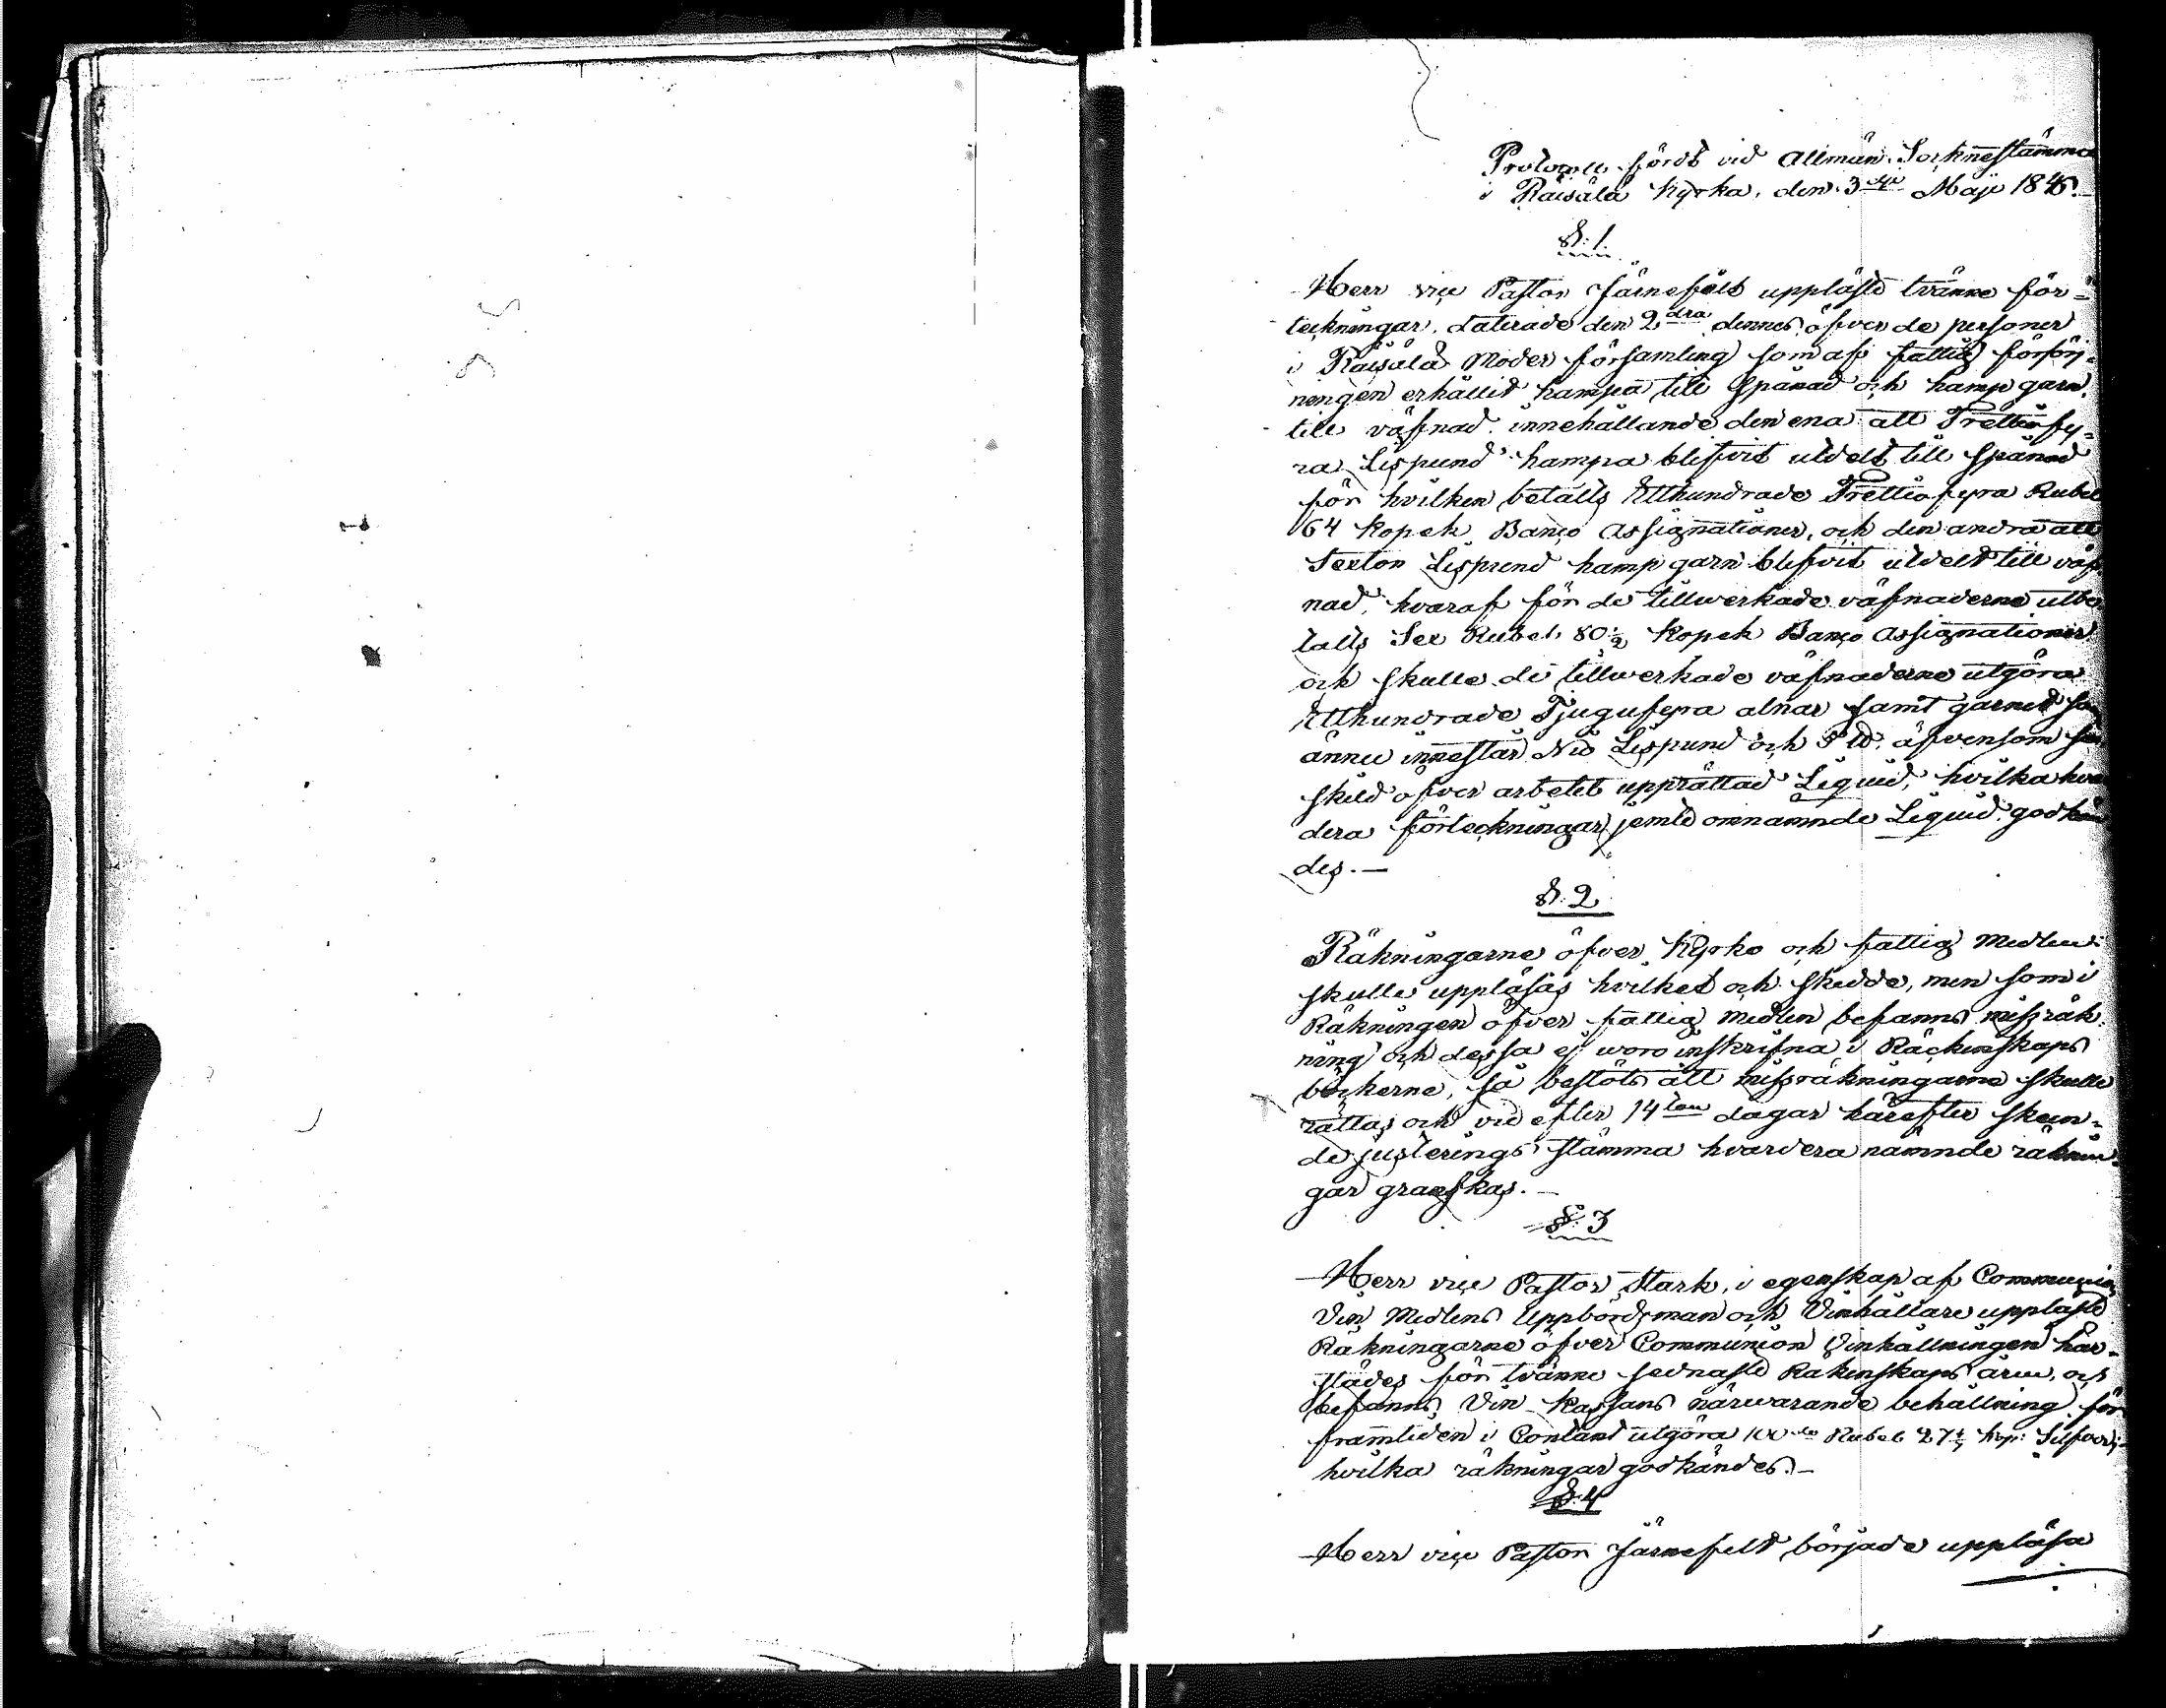 Protocoll fördt vid Allmän Socknestämma
i Räisälä Kyrka, den 3dje Maji 1846.
§. 1.
Herr vice Pastor Järnefelt uppläste tvänne för=
teckningar, daterade den 2dra dennes, öfver de personer
i Räisälä Moder församling som af fattig försörj=
ningen erhållit hampa till spånad och hamp garn
till väfnad, innehållande den ena att Trettiofy=
ra Lispund hampa blifvit utdelt till spånad
för hvilken betalts Etthundrade Trettiofyra Rubel
64 Kopek Banco Assignationer, och den andra att
Sexton Lispund hamp garn blifvit utdelt till väf
nad, hvaraf för de tillverkade väfnaderne utbe
talts Sex Rubel 80 1/2 Kopek Banco Assignationer
och skulle de tillverkade väfnaderne utgöra
Etthundrade Tjugufyra alnar samt garnet
ännu innestår Nio Lispund och 5 ℔. äfvensom
skild öfver arbetet upprättad Liquid, hvilka hva
dera förteckningar jemte omnämnde Liquid godkän
des.—
§. 2
Räkningarne öfver Kyrko och fattig medlen
skulle uppläsas hvilket och skedde, men som i
Räkningen öfver fattig medlen befanns missräk=
ning och dessa ej woro inskrifna i Räckenskaps
böckerne, så beslöts att missräkningarne skulle
rättas och vid efter 14ton dagar härefter skeen=
de justerings stämma hvardera nämnde räknin=
gar granskas.—
§. 3
Herr vice Pastor Stark, i egenskap af Communion
Vin Medlens Uppbördsman och Vinhållare uppläste
Räkningarne öfver Communion Vinhållningen här=
städes för tvänne sednaste Räkenskaps åren, och
befanns Vin Kassans närwarande behållning för
framtiden i Contant utgöra 100de Rubel 27 1/7 kop: Silfver,
hvilka räkningar godkändes.—
§. 4
Herr vice Pastor Järnefelt började uppläsa